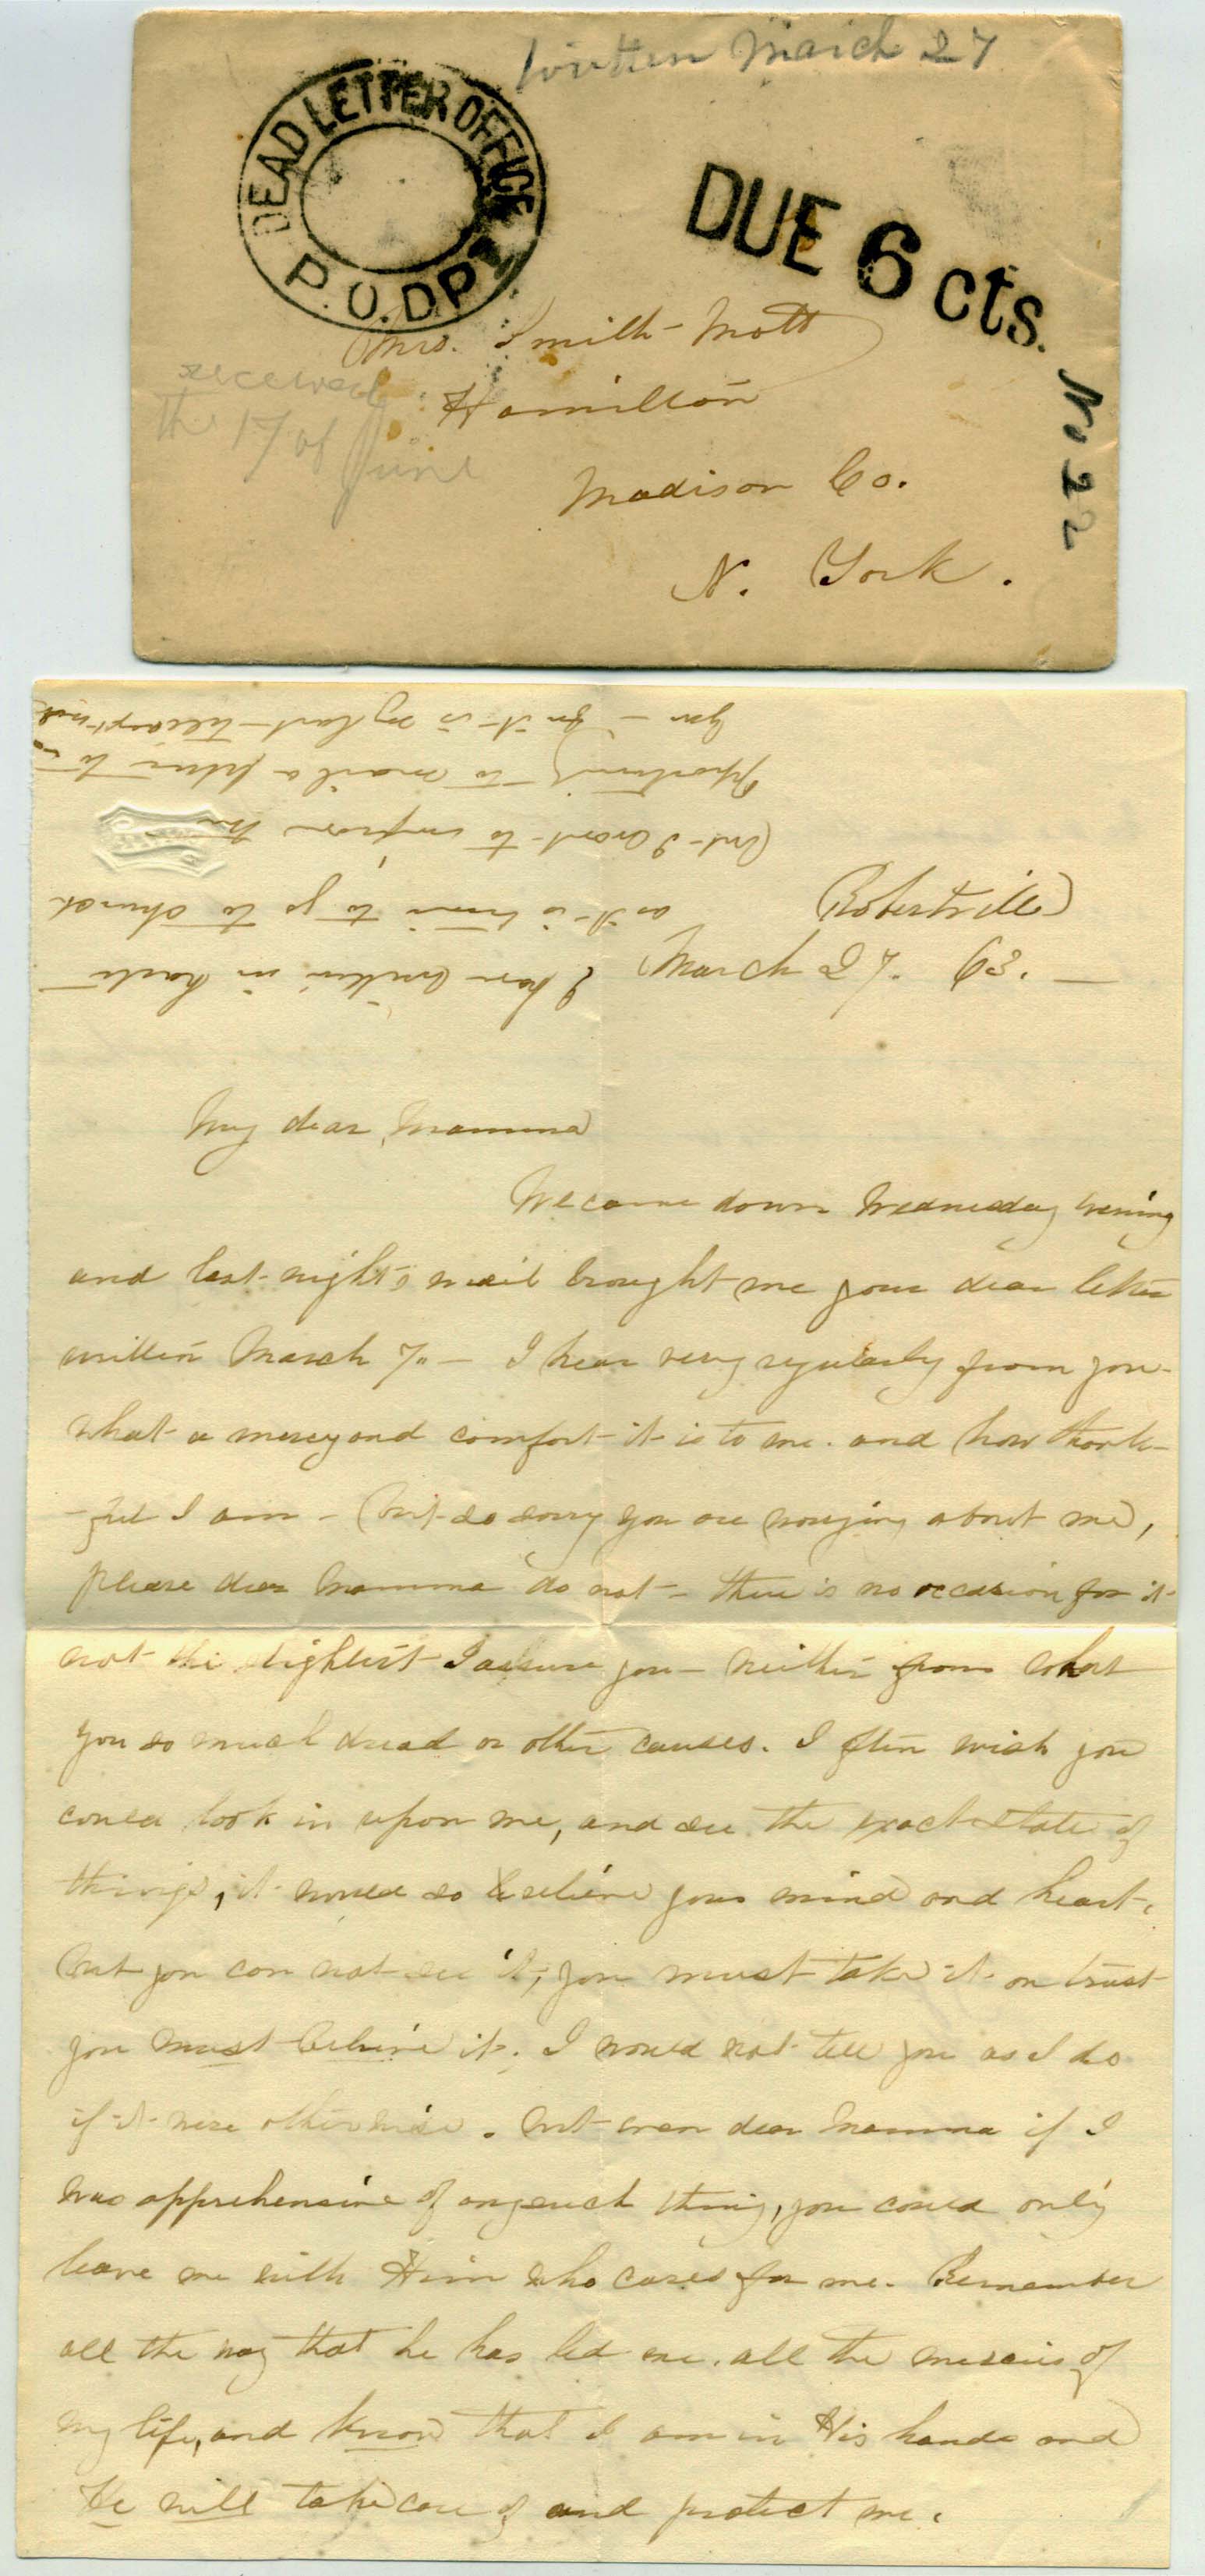 written March 27
DEAD LETTER OFFICE
P.O.DPT.
DUE 6 cts.
Mrs. Smith Mott
received
the 17 of June
Hamilton
Madison Co.
N. York.
No 22
Robertville
March 27. 63.—
I have written in haste
as it is time to go to church
But I want to improve the
opportunity to mail a letter to
you – for it is my last
My dear Mamma
We came down Wednesday evening
and last night's mail brought me your dear letter
written March 7. – I hear very regularly from you –
what a mercy and comfort it is to me. and how thank-
-ful I am – But so sorry you are worrying about me,
please dear Mamma do not – there is no occasion for it
not the slightest I assure you – neither from what
you so much dread or other causes. I often wish you
could look in upon me, and see the exact state of
things, it would so relieve your mind and heart.
But you can not see it, you must take it on trust
you must believe it. I would not tell you as I do
if it were otherwise. But even dear Mamma if I
was apprehensive of any such thing, you could only
leave me with Him who cares for me. Remember
all the way that he has led me. all the mercies of
my life, and know that I am in His hands and
He will take care of and protect me.